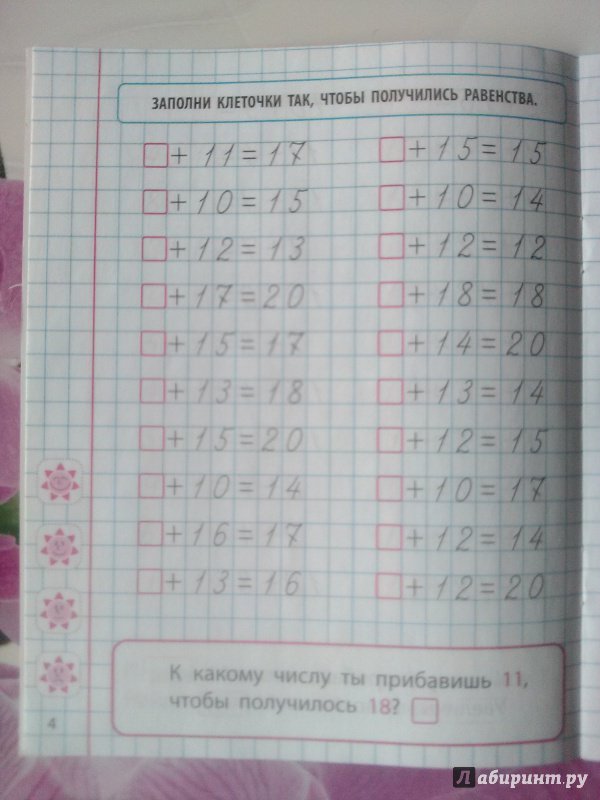 ЗАПОЛНИ КЛЕТОЧКИ ТАК, ЧТОБЫ ПОЛУЧИЛИСЬ РАВЕНСТВА.
□ + 11 = 17
□ + 10 = 15
□ + 12 = 13
□ + 17 = 20
□ + 15 = 17
□ + 13 = 18
□ + 15 = 20
□ + 10 = 14
□ + 16 = 17
□ + 13 = 16
□ + 15 = 15
□ + 10 = 14
□ + 12 = 12
□ + 18 = 18
□ + 14 = 20
□ + 13 = 14
□ + 12 = 15
□ + 10 = 17
□ + 12 = 14
□ + 12 = 20
К какому числу ты прибавишь 11,
чтобы получилось 18? □
4
Лабиринт.ру